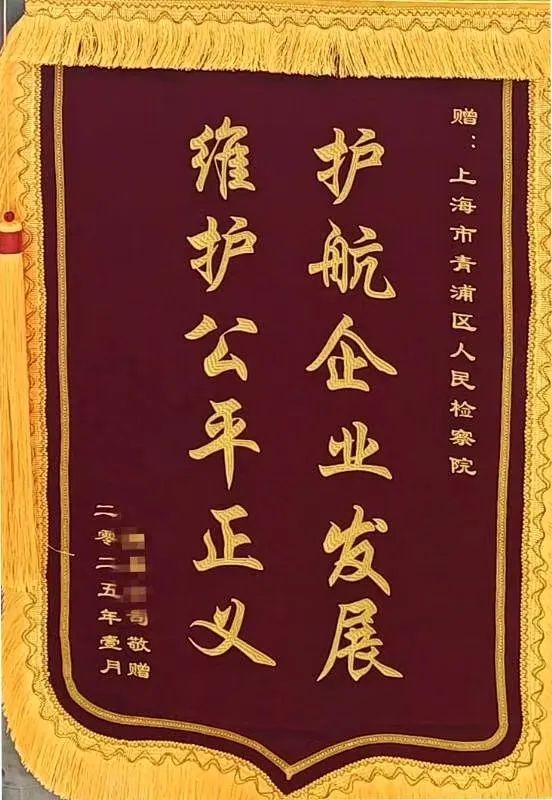 赠：上海市青浦区人民检察院
护航企业发展
维护公平正义
司敬赠
二零二五年壹月